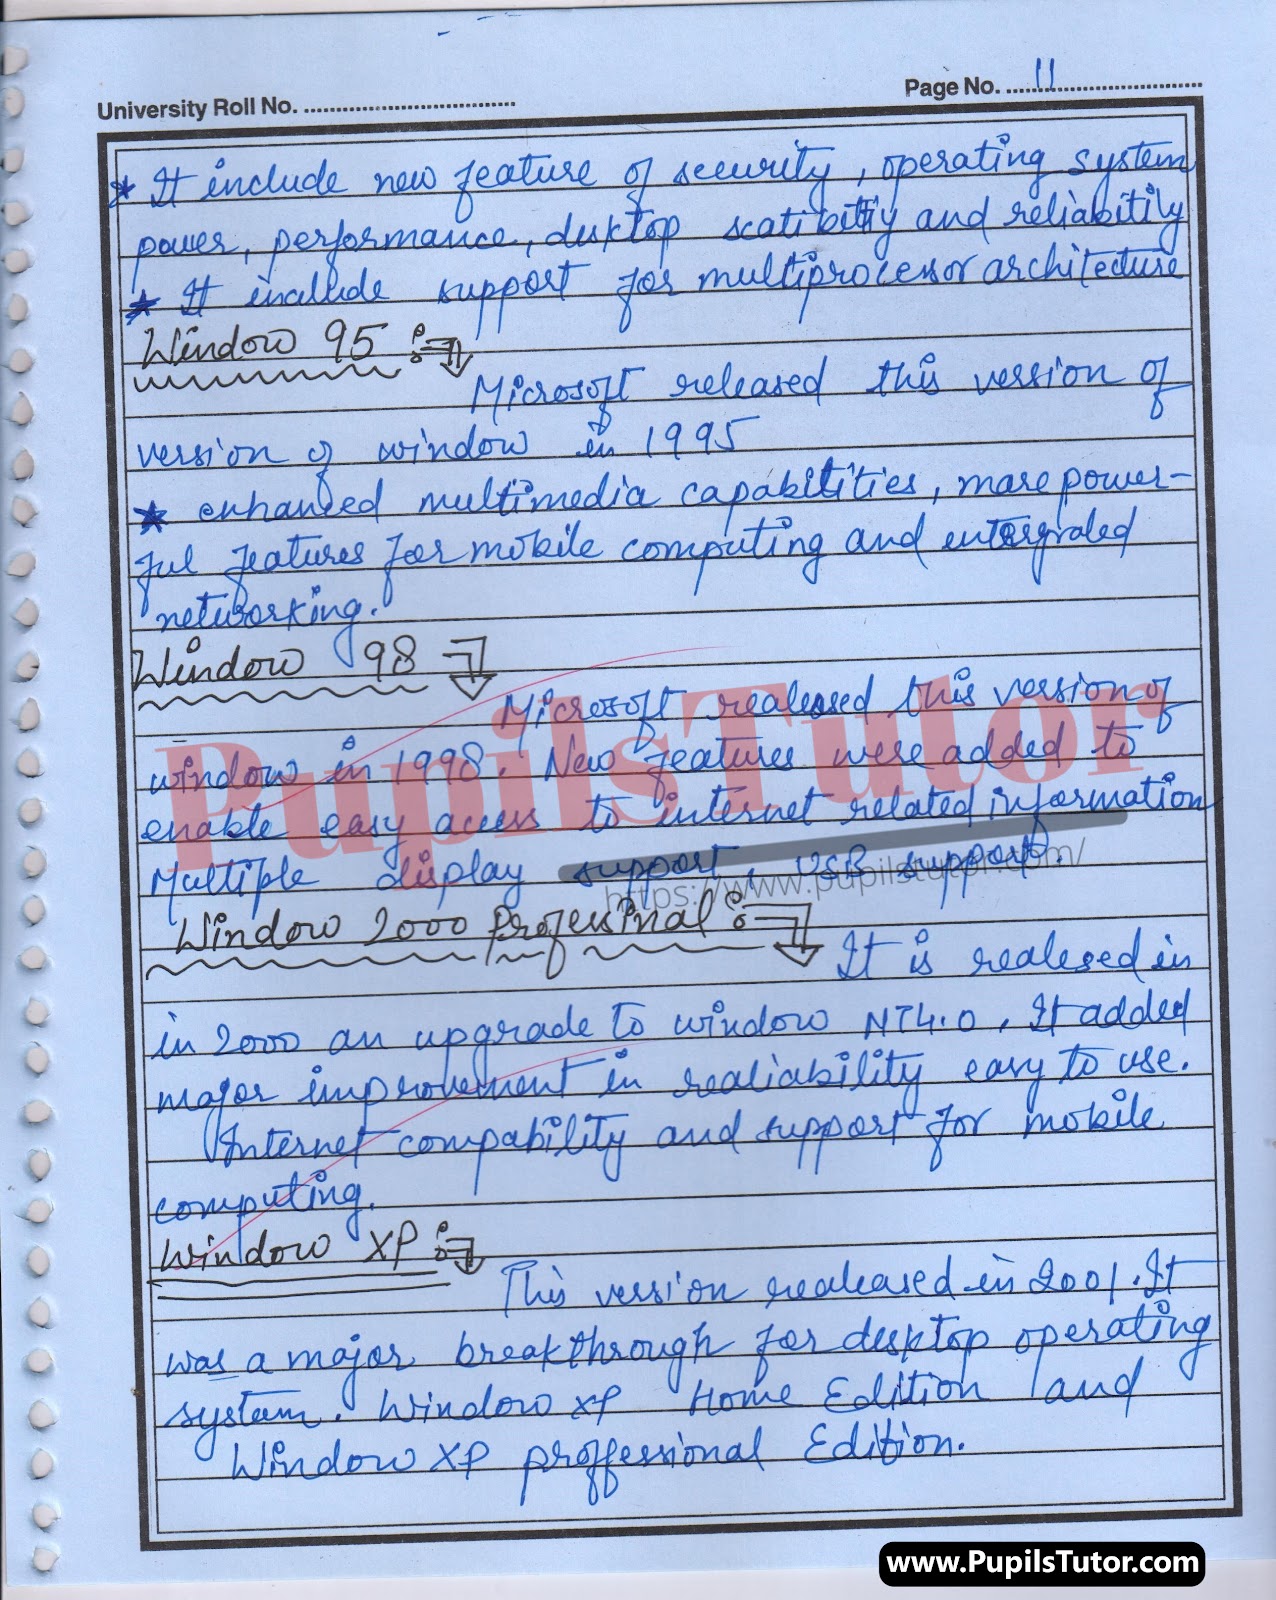 University Roll No. ....................................
Page No. ...11.............................
* It include new feature of security, operating system
power, performance, desktop scatibitiy and reliabitily
* It include support for multiprocessor architecture
Window 95 :-
Microsoft released this version of
version of window in 1995
* enhanced multimedia capabitities, more power-
ful features for mobile computing and entergrated
networking.
Window 98
Microsoft realeased this version of
window in 1998. New features were added to
enable easy access to internet related information
Multiple display support, USB support.
PupilsTutor
https://www.pupilstutor.com/
Window 2000 Professinal :-
It is realesed in
in 2000 an upgrade to window NT4.0, It added
major improvement in realiability easy to use.
Internet compability and support for mobile
computing.
Window XP :-
This version realeased in 2001. It
was a major breakthrough for desktop operating
system. Window XP Home Edition and
Window XP proffessional Edition.
www.PupilsTutor.com